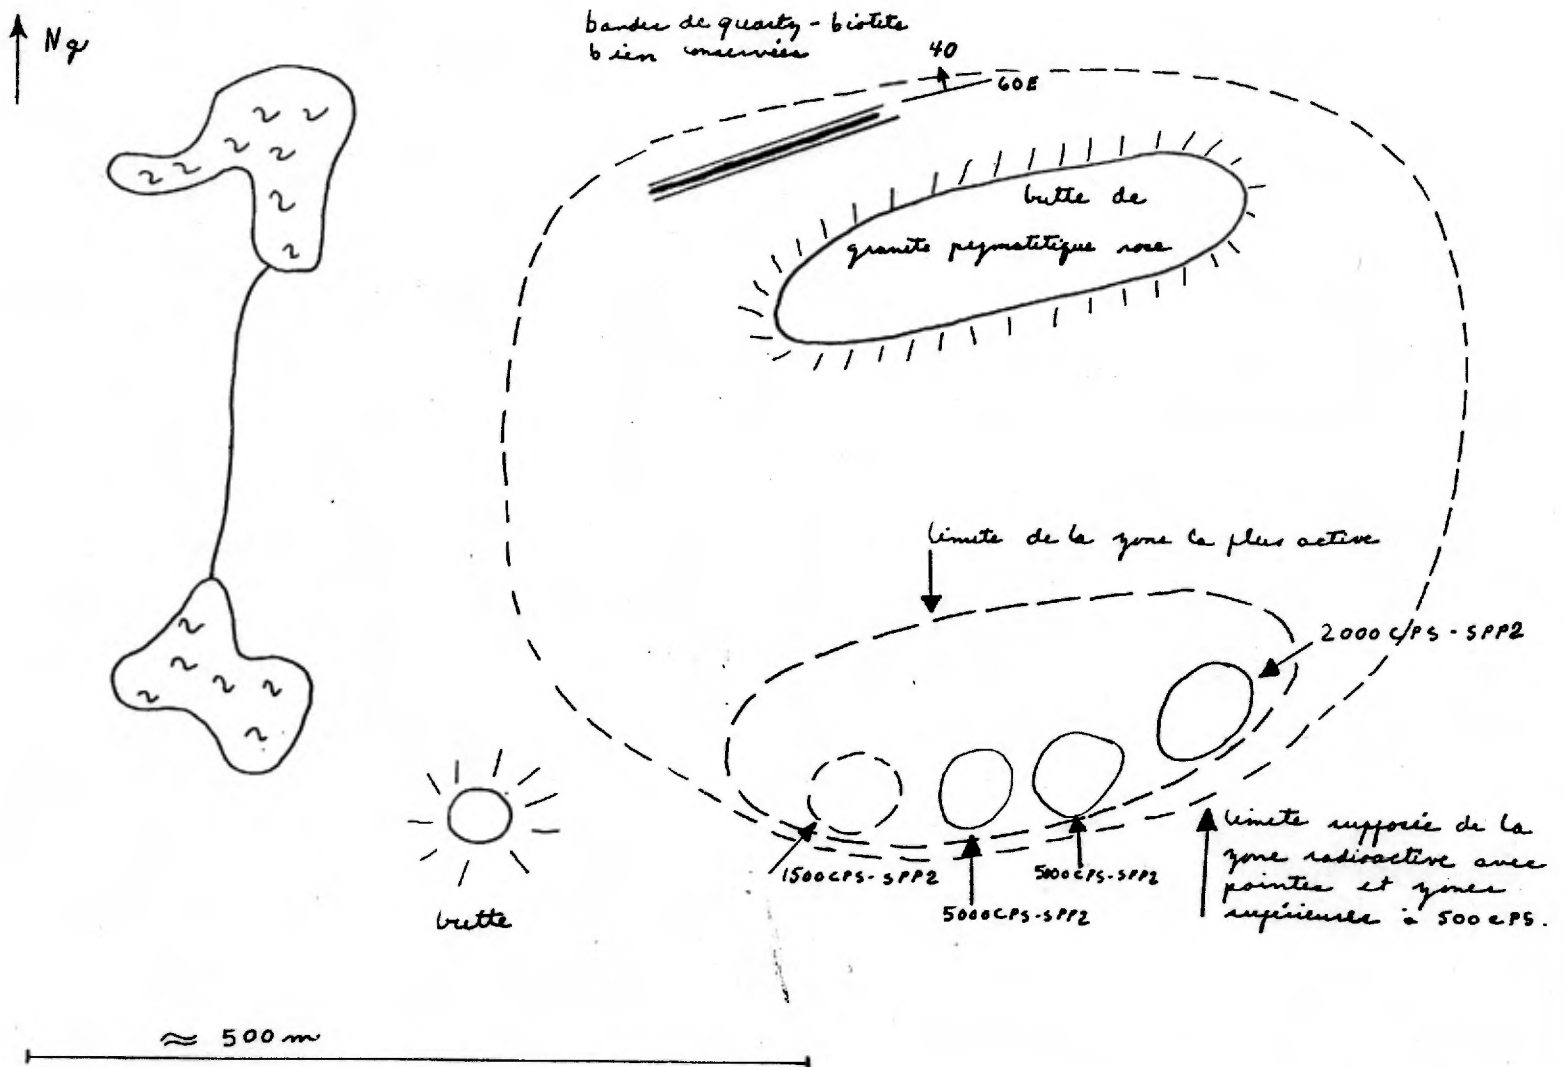 Ng
bandes de quartz-biotite
bien conservées
40
60E
butte de
granite pegmatitique rose
limite de la zone la plus active
2000 C/PS - SPP2
1500 CPS - SPP2
5000 CPS - SPP2
5000 CPS - SPP2
limite supposée de la
zone radioactive avec
pointes et zones
supérieures à 500 CPS.
butte
≈ 500 m